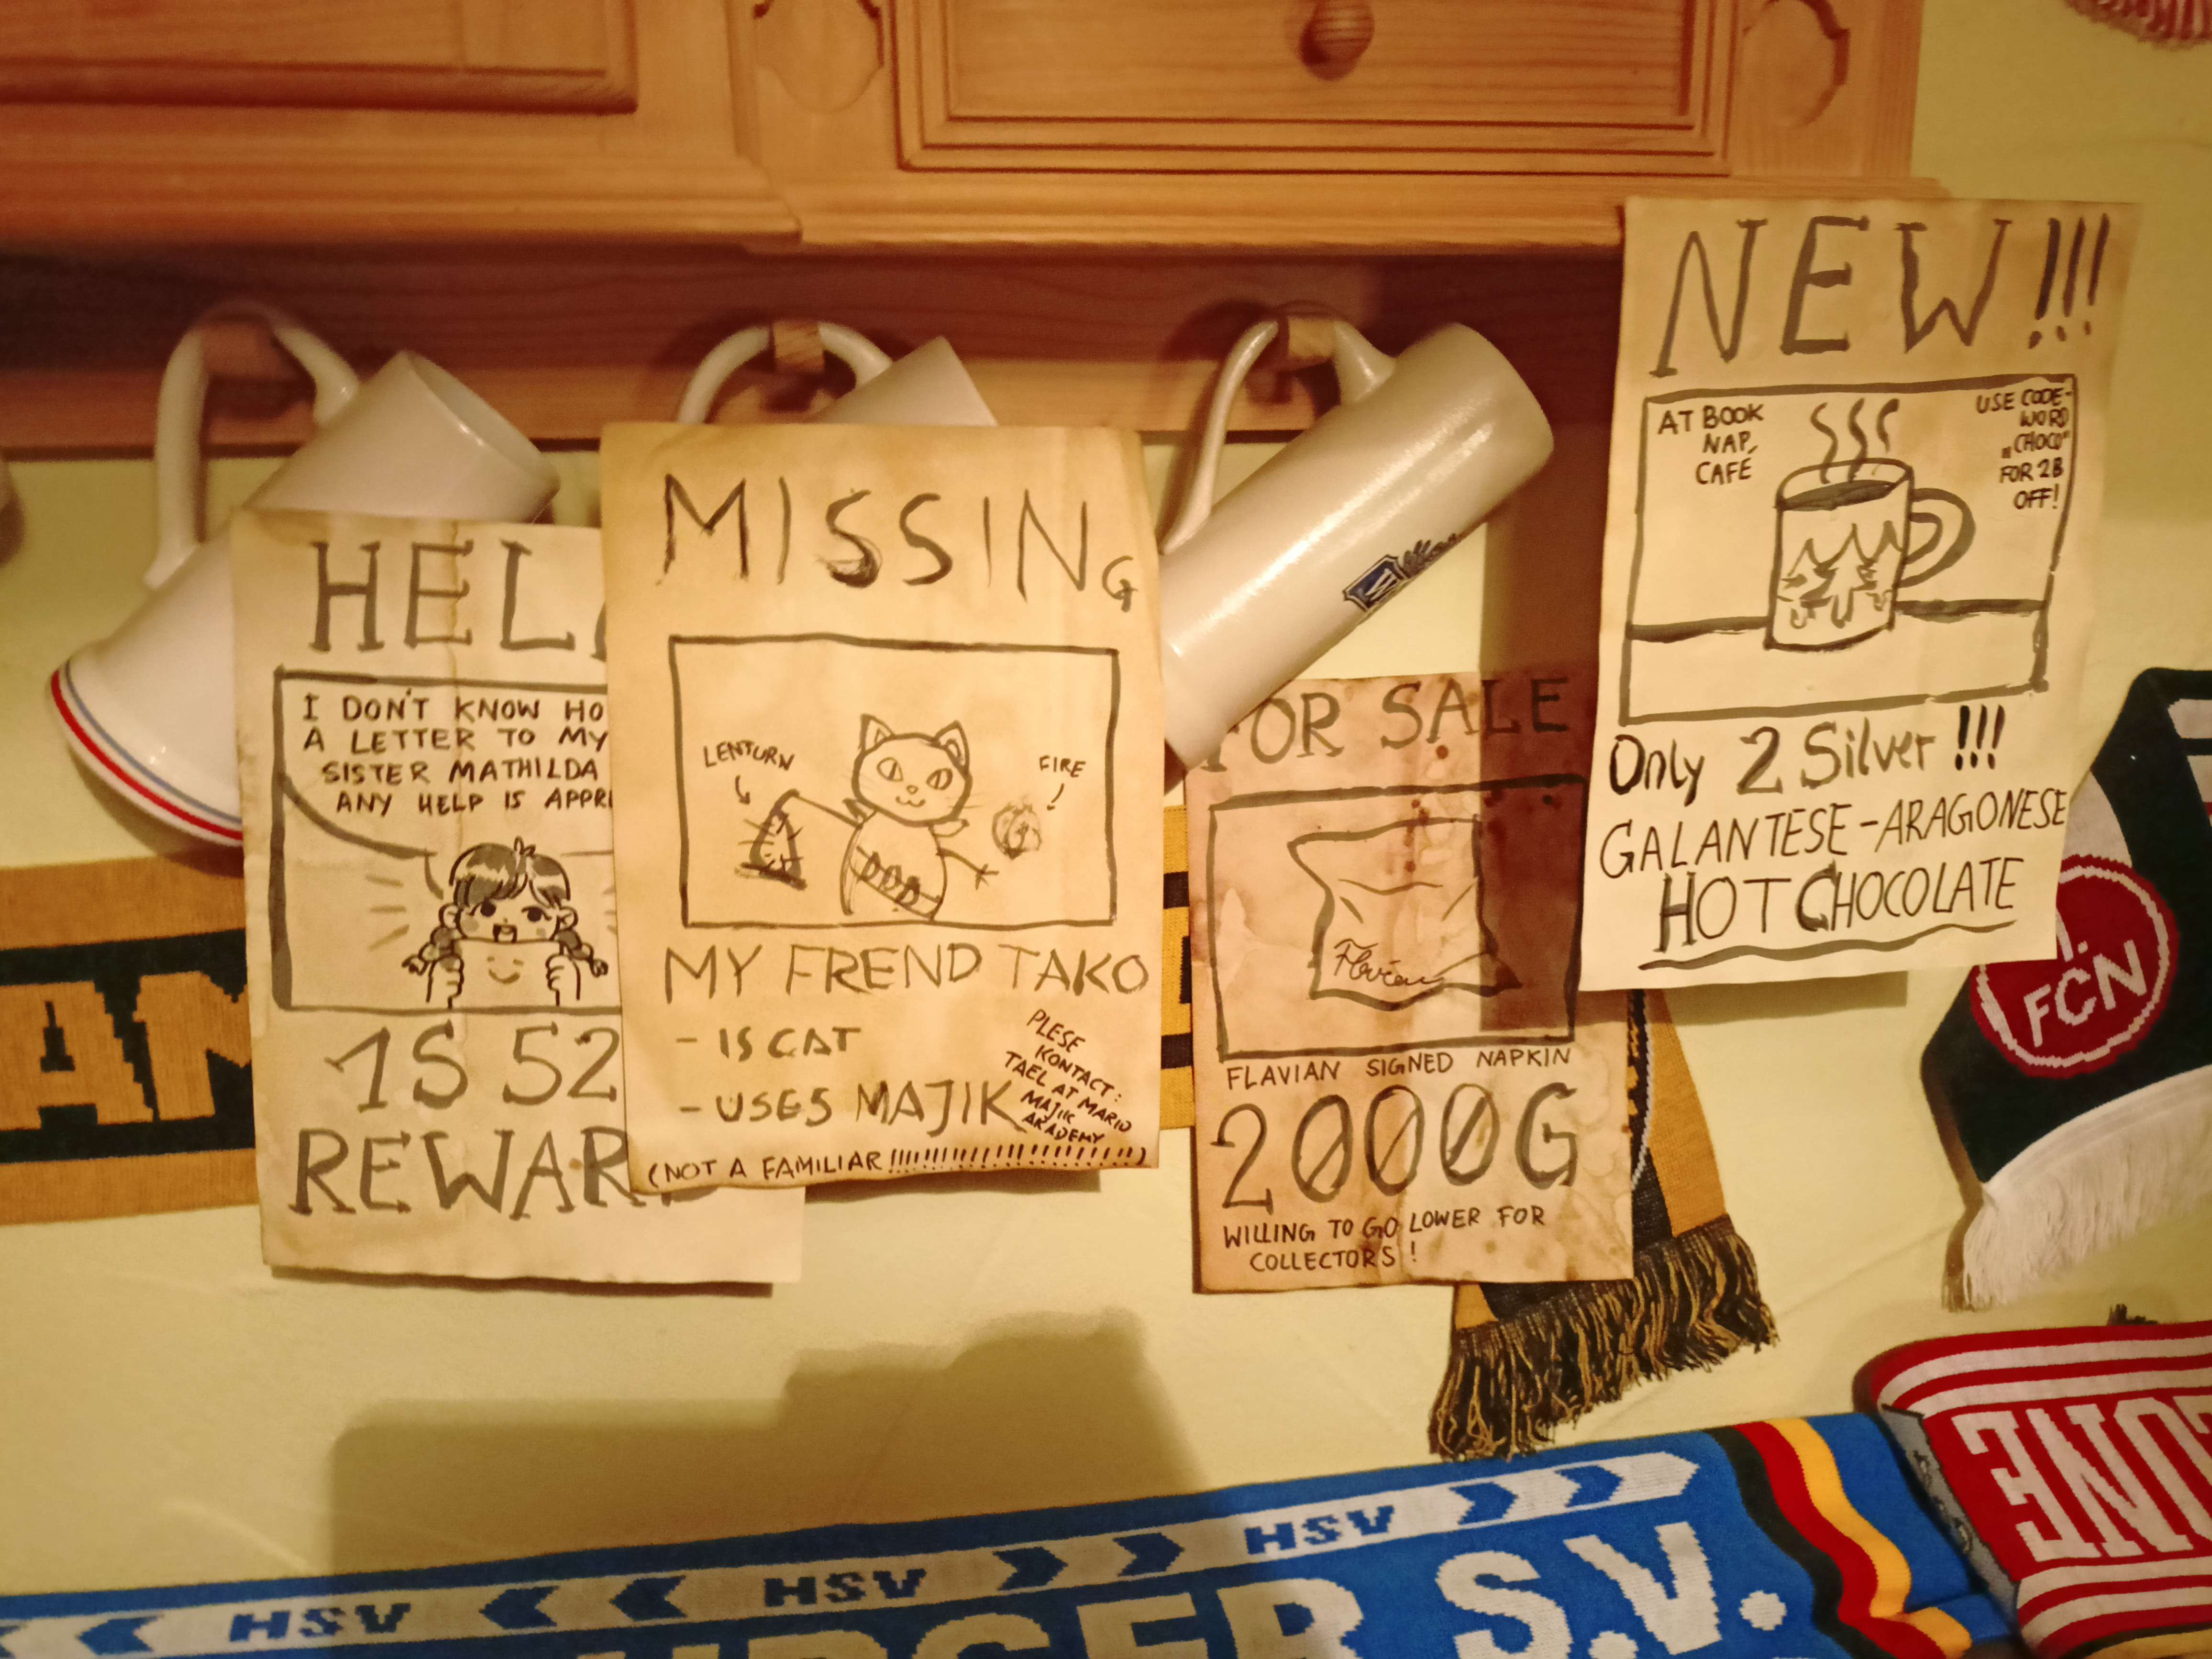 I DON'T KNOW HO
A LETTER TO MY
SISTER MATHILDA
ANY HELP IS APPR
1S 52
MISSING
LENTURN
FIRE
MY FREND TAKO
- IS CAT
- USES MAJIK
PLESE
KONTACT:
TAEL AT MARIO
MAJIK
ARADEMY
(NOT A FAMILIAR!!!!!!!!!!!!!!!!!!!!!!!!)
FOR SALE
Flavian
FLAVIAN SIGNED NAPKIN
2000G
WILLING TO GO LOWER FOR
COLLECTORS!
NEW!!!
AT BOOK
NAP,
CAFE
USE CODE-
WORD
„CHOCO"
FOR 2B
OFF!
Only 2 Silver!!!
GALANTESE-ARAGONESE
HOT CHOCOLATE
1.
FCN
HSV HSV HSV
S.V.